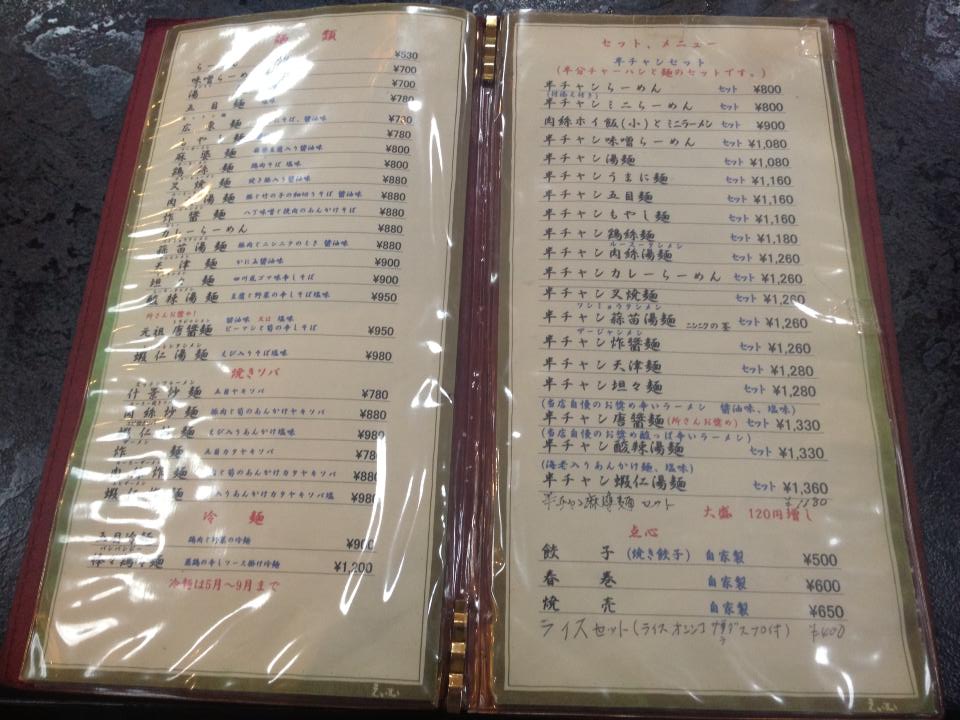 麺 類
らーめん ¥530
味噌らーめん ¥700
湯 ¥700
五目麺 塩味 ¥780
広東麺 そば、醤油味 ¥780
もやし麺 ¥780
麻婆麺 麻婆豆腐入り醤油味 ¥800
鶏絲麺 鶏肉そば 塩味 ¥800
叉焼麺 焼き豚入り醤油味 ¥880
肉絲湯麺 豚と竹の子の細切りそば 醤油味 ¥880
炸醤麺 八丁味噌と挽肉のあんかけそば ¥880
カレーらーめん ¥880
蒜苗湯麺 豚肉とニンニクのくき 醤油味 ¥880
天津麺 かに玉醤油味 ¥900
坦々麺 四川風ゴマ味辛しそば ¥900
酸辣湯麺 豆腐と野菜の辛しそば塩味 ¥950
所さんお奬め!
元祖 唐醤麺 醤油味 又は 塩味 ピーマンと筍の辛しそば ¥950
蝦仁湯麺 えび入りそば塩味 ¥980
焼きソバ
什景炒麺 五目ヤキソバ ¥780
肉絲炒麺 豚肉と筍のあんかけヤキソバ ¥880
蝦仁炒麺 えび入りあんかけ塩味 ¥980
炸 麺 五目カタヤキソバ ¥780
肉 炸麺 肉と筍のあんかけカタヤキソバ ¥880
蝦仁炸麺 入りあんかけカタヤキソバ塩 ¥980
冷 麺
五目冷麺 鶏肉と野菜の冷麺 ¥900
棒々鶏冷麺 蒸鶏の辛しソース掛け冷麺 ¥1,200
冷麺は5月〜9月まで
セット、メニュー
半チャンセット
(半分チャーハンと麺のセットです。)
半チャンらーめん セット ¥800
半チャンミニらーめん セット ¥800
肉絲ホイ飯(小)とミニラーメン セット ¥900
半チャン味噌らーめん セット ¥1,080
半チャン湯麺 セット ¥1,080
半チャンうまに麺 セット ¥1,160
半チャン五目麺 セット ¥1,160
半チャンもやし麺 セット ¥1,160
半チャン鶏絲麺 セット ¥1,180
ルースータンメン
半チャン肉絲湯麺 セット ¥1,260
半チャンカレーらーめん セット ¥1,260
半チャン叉焼麺 セット ¥1,260
半チャン蒜苗湯麺 ニンニクの茎 セット ¥1,260
ザージャンメン
半チャン炸醤麺 セット ¥1,260
半チャン天津麺 セット ¥1,280
半チャン坦々麺 セット ¥1,280
(当店自慢のお奬め辛いラーメン 醤油味、塩味)
半チャン唐醤麺(所さんお奬め) セット ¥1,330
(当店自慢のお奬め酸っぱ辛いラーメン)
半チャン酸辣湯麺 セット ¥1,330
(海老入りあんかけ麺、塩味)
半チャン蝦仁湯麺 セット ¥1,360
半チャン麻婆麺セット ¥1180
大盛 120円増し
点心
餃 子 (焼き餃子) 自家製 ¥500
春 巻 自家製 ¥600
焼 売 自家製 ¥650
ライスセット(ライス オシンコ サラダ スープ付) ¥400